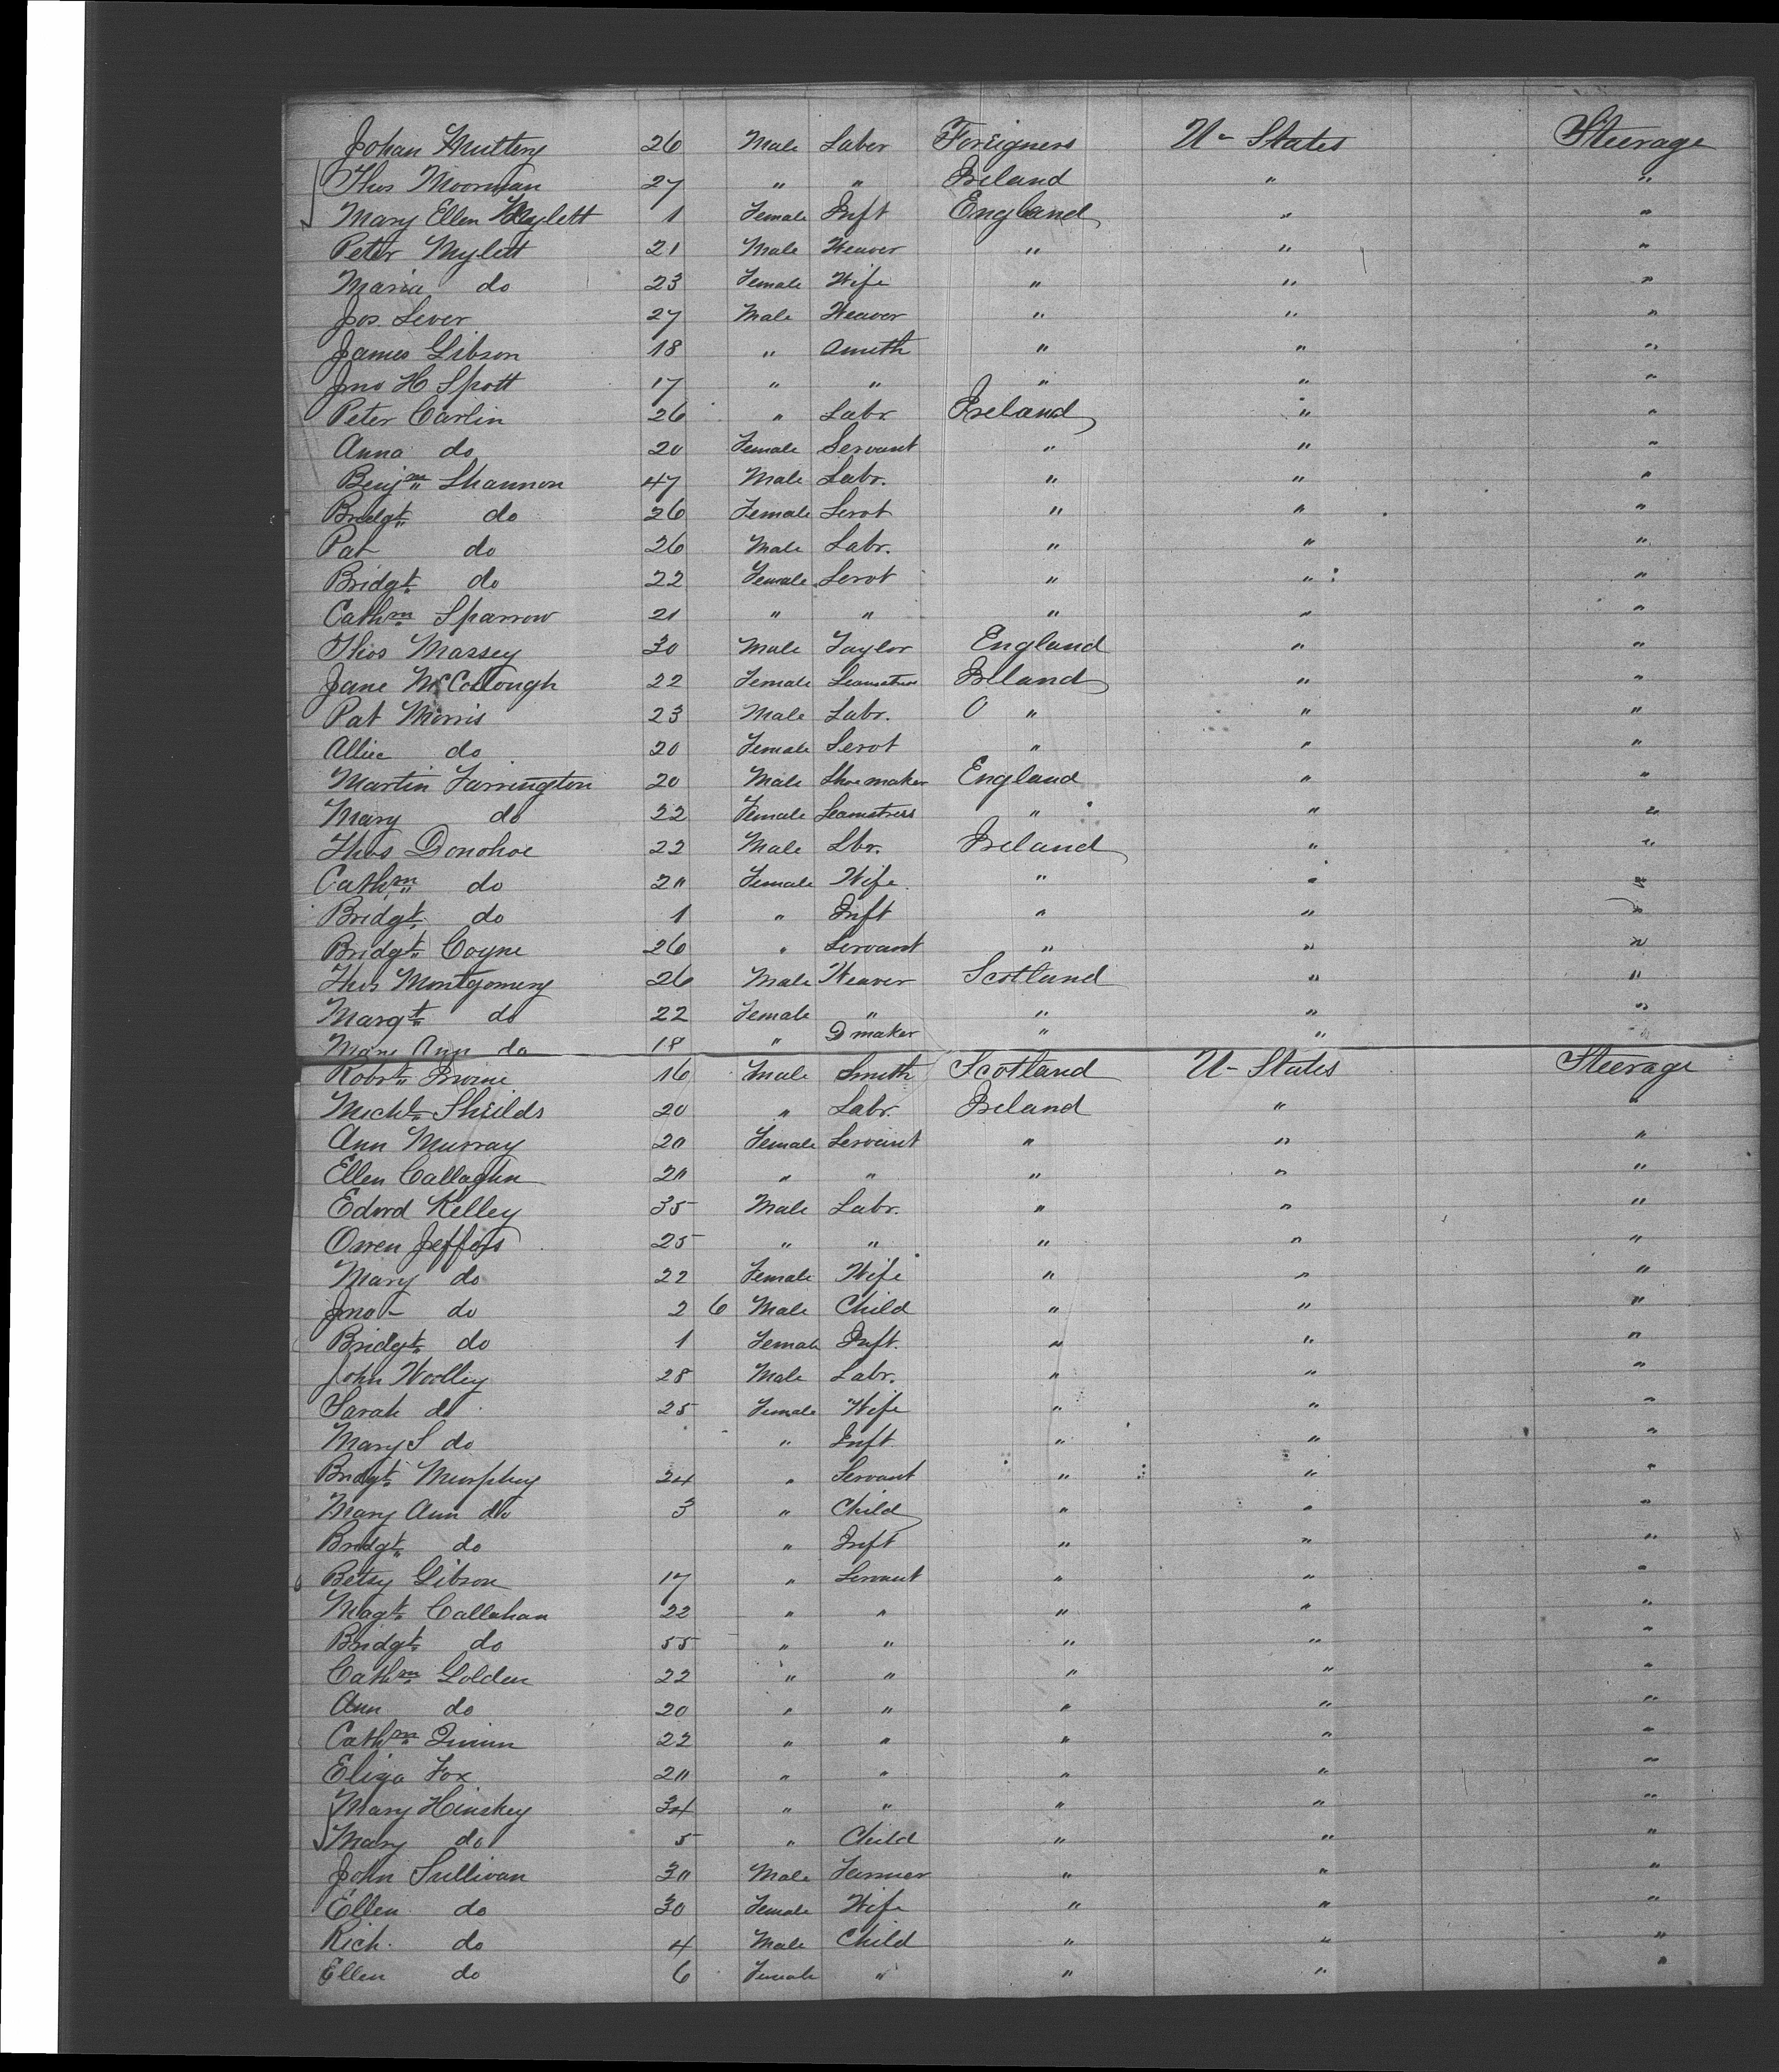 Johan Muttery 26 Male Laber Foreigners U-States Steerage
Thos Moorman 27 " " Ireland " "
Mary Ellen Mylett 1 Female Inft England " "
Peter Mylett 21 Male Weaver " " "
Maria do 23 Female Wife " " "
Jos. Lever 27 Male Weaver " " "
James Gibson 18 " Smith " " "
Jno H Spott 17 " " " " "
Peter Carlin 26 " Labr Ireland " "
Anna do 20 Female Servant " " "
Benjn Shannon 47 Male Labr. " " "
Bridgt do 26 Female Servt " " "
Pat do 26 Male Labr. " " "
Bridgt do 22 Female Servt " " "
Cathn Sparrow 21 " " " " "
Thos Massey 30 Male Taylor England " "
Jane McCollough 22 Female Seamstress Ireland " "
Pat Morris 23 Male Labr. " " "
Allice do 20 Female Servt " " "
Martin Farrington 20 Male Shoemaker England " "
Mary do 22 Female Seamstress " " "
Thos Donohoe 22 Male Lbr. Ireland " "
Cathn do 20 Female Wife " " "
Bridgt do 1 " Inft " " "
Bridgt Coyne 26 " Servant " " "
Thos Montgomery 26 Male Weaver Scotland " "
Margt do 22 Female " " " "
Mary Ann do 18 " D maker " "
Robrt Irvine 16 Male Smith Scotland U-States Steerage
Michl Shields 20 " Labr. Ireland " "
Ann Murray 20 Female Servant " " "
Ellen Callaghn 20 " " " " "
Edwd Kelley 35 Male Labr. " " "
Owen Jeffers 25 " " " " "
Mary do 22 Female Wife " " "
Jno - do 2 6 Male Child " " "
Bridgt do 1 Female Inft. " " "
John Woolley 28 Male Labr. " " "
Sarah do 25 Female Wife " " "
Mary S do " Inft " " "
Bridgt Murphey 24 " Servant " " "
Mary Ann do 3 " Child " " "
Bridgt do " Inft " " "
Betsy Gibson 17 " Servant " " "
Magt Callahan 22 " " " " "
Bridgt do 55 " " " " "
Cathn Golden 22 " " " " "
Ann do 20 " " " " "
Cathn Quinn 22 " " " " "
Eliza Fox 20 " " " " "
Mary Hinskey 34 " " " " "
Mary do 5 " Child " " "
John Sullivan 30 Male Farmer " " "
Ellen do 30 Female Wife " " "
Rich. do 4 Male Child " " "
Ellen do 6 Female " " " "